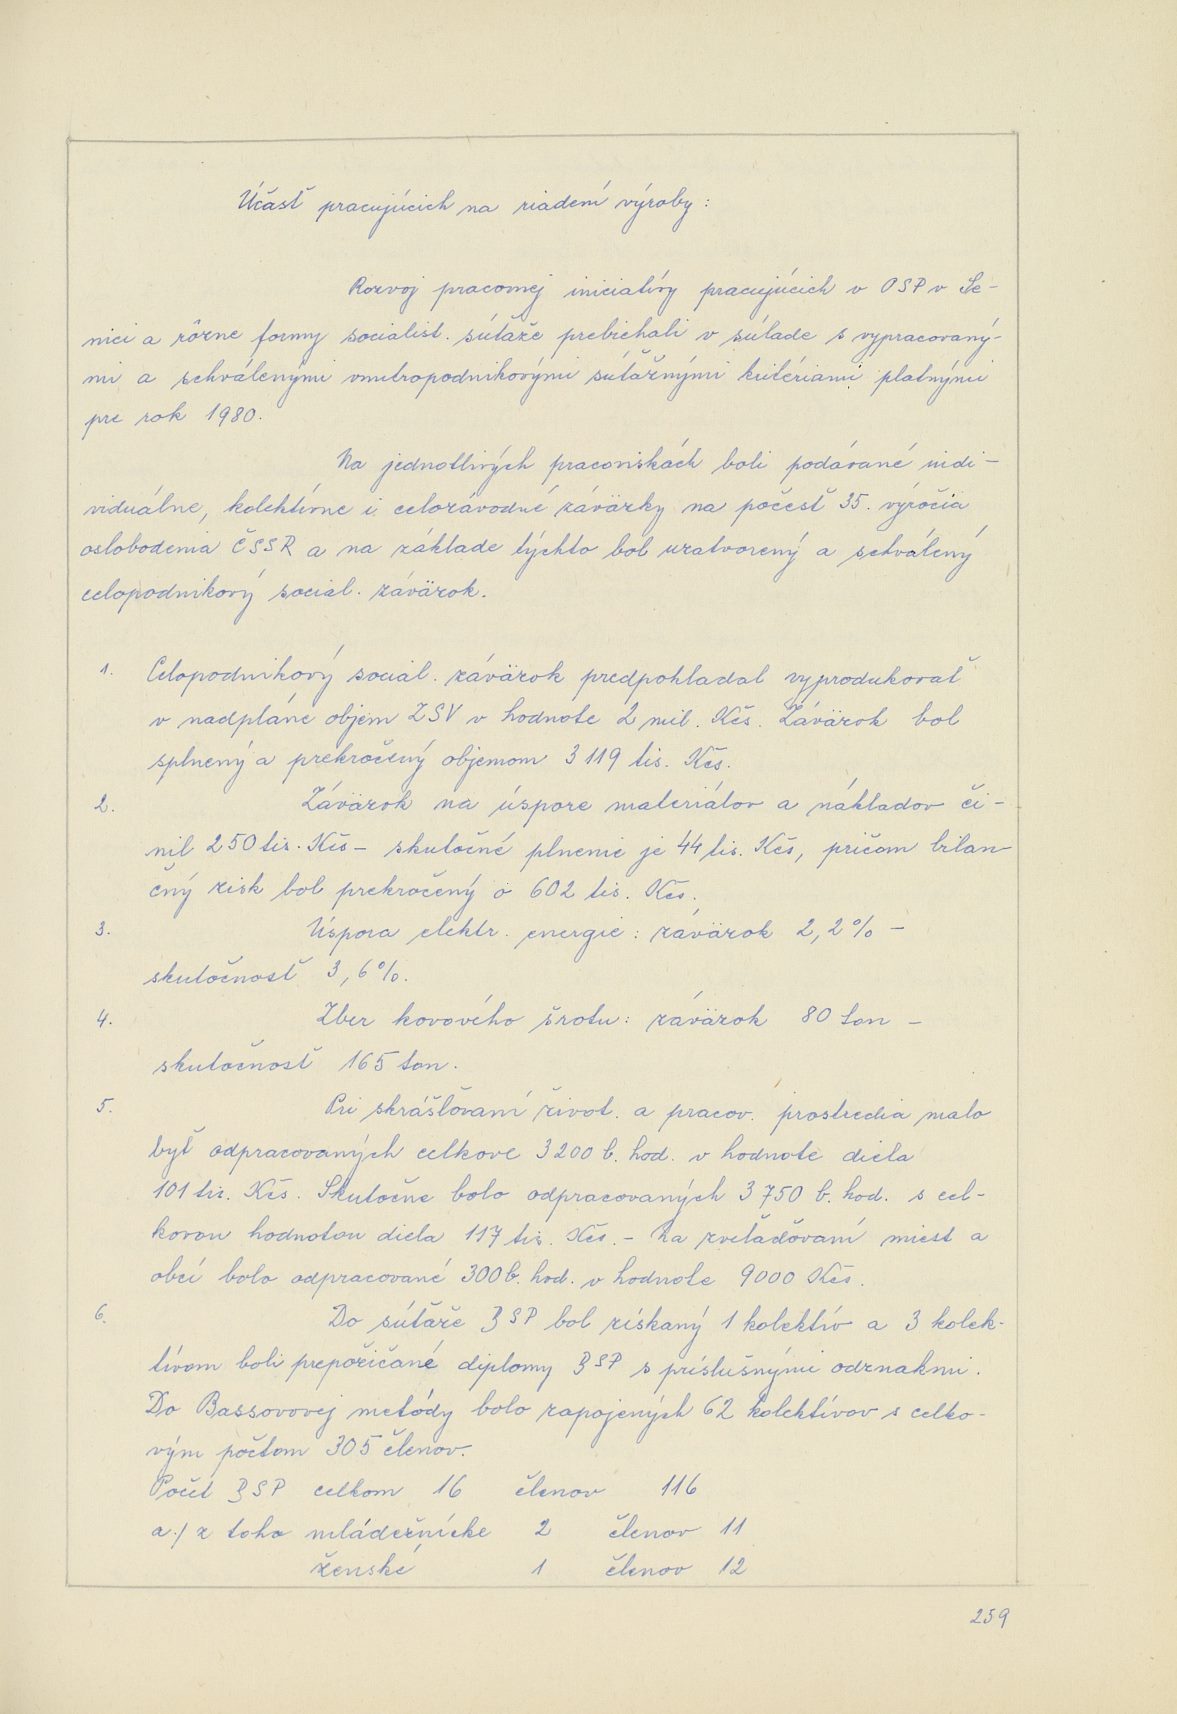 Účasť pracujúcich na riadení výroby:
Rozvoj pracovnej iniciatívy pracujúcich v OSP v Se-
nici a rôzne formy socialist. súťaže prebiehali v súlade s vypracovaný-
mi a schválenými vnútropodnikovými súťažnými kritériami platnými
pre rok 1980.
Na jednotlivých pracoviskách boli podávané indi-
viduálne, kolektívne i celozávodné záväzky na počesť 35. výročia
oslobodenia ČSSR a na základe týchto bol uzatvorený a schválený
celopodnikový social. záväzok.
1. Celopodnikový social. záväzok predpokladal vyprodukovať
v nadpláne objem ZSV v hodnote 2 mil. Kčs. Záväzok bol
splnený a prekročený objemom 3 119 tis. Kčs.
2. Záväzok na úspore materiálov a nákladov či-
nil 250 tis. Kčs - skutočné plnenie je 44 tis. Kčs, pričom bilan-
čný zisk bol prekročený o 602 tis. Kčs.
3. Úspora elektr. energie: záväzok 2,2% -
skutočnosť 3,6%.
4. Zber kovového šrotu: záväzok 80 ton -
skutočnosť 165 ton.
5. Pri skrášľovaní život. a pracov. prostredia malo
byť odpracovaných celkove 3200 b. hod. v hodnote diela
101 tis. Kčs. Skutočne bolo odpracovaných 3750 b. hod. s cel-
kovou hodnotou diela 117 tis. Kčs. - Na zveľaďovaní miest a
obcí bolo odpracované 300 b. hod. v hodnote 9000 Kčs.
6. Do súťaže BSP bol získaný 1 kolektív a 3 kolek-
tívom boli prepožičané diplomy BSP s príslušnými odznakmi.
Do Bassovovej metódy bolo zapojených 62 kolektívov s celko-
vým počtom 305 členov.
Počet BSP celkom 16 členov 116
a./ z toho mládežnícke 2 členov 11
ženské 1 členov 12
259